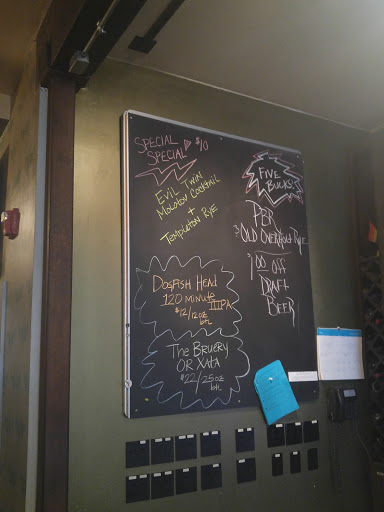 SPECIAL $10
SPECIAL
EVIL TWIN
MOLOTOV COCKTAIL
+
TEMPLETON RYE
DOGFISH HEAD
120 MINUTE
IIIPA
$12/12oz
btl
THE BRUERY
OR XATA
$22/25oz
btl
FIVE
BUCKS!
PBR
OLD OVERHOLT RYE
OFF
DRAFT
BEER